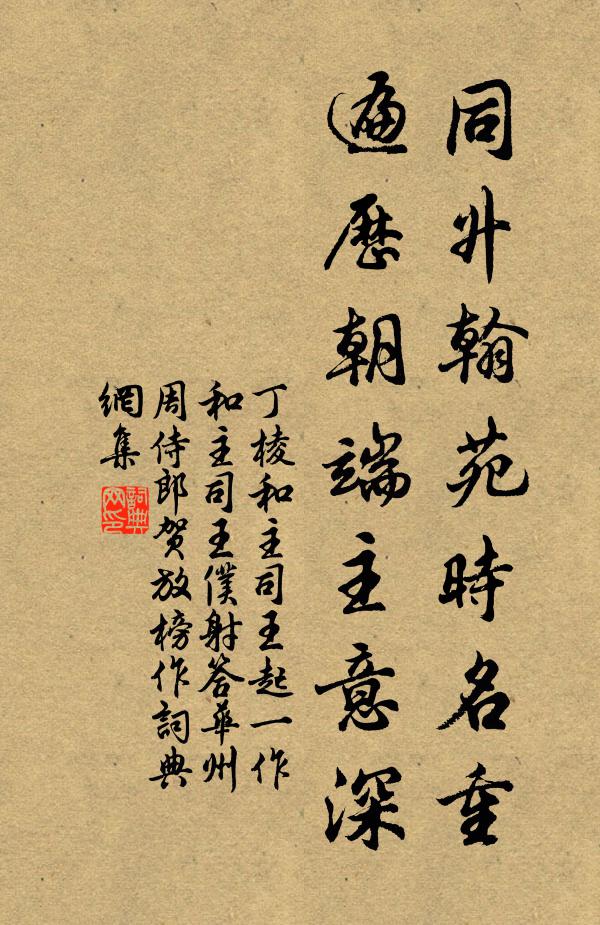 同升翰苑時名重
遍歷朝端主意深
丁棱和主司王起一作
和主司王僕射答華州
周侍郎賀放榜作詞典
網集
詞典网印